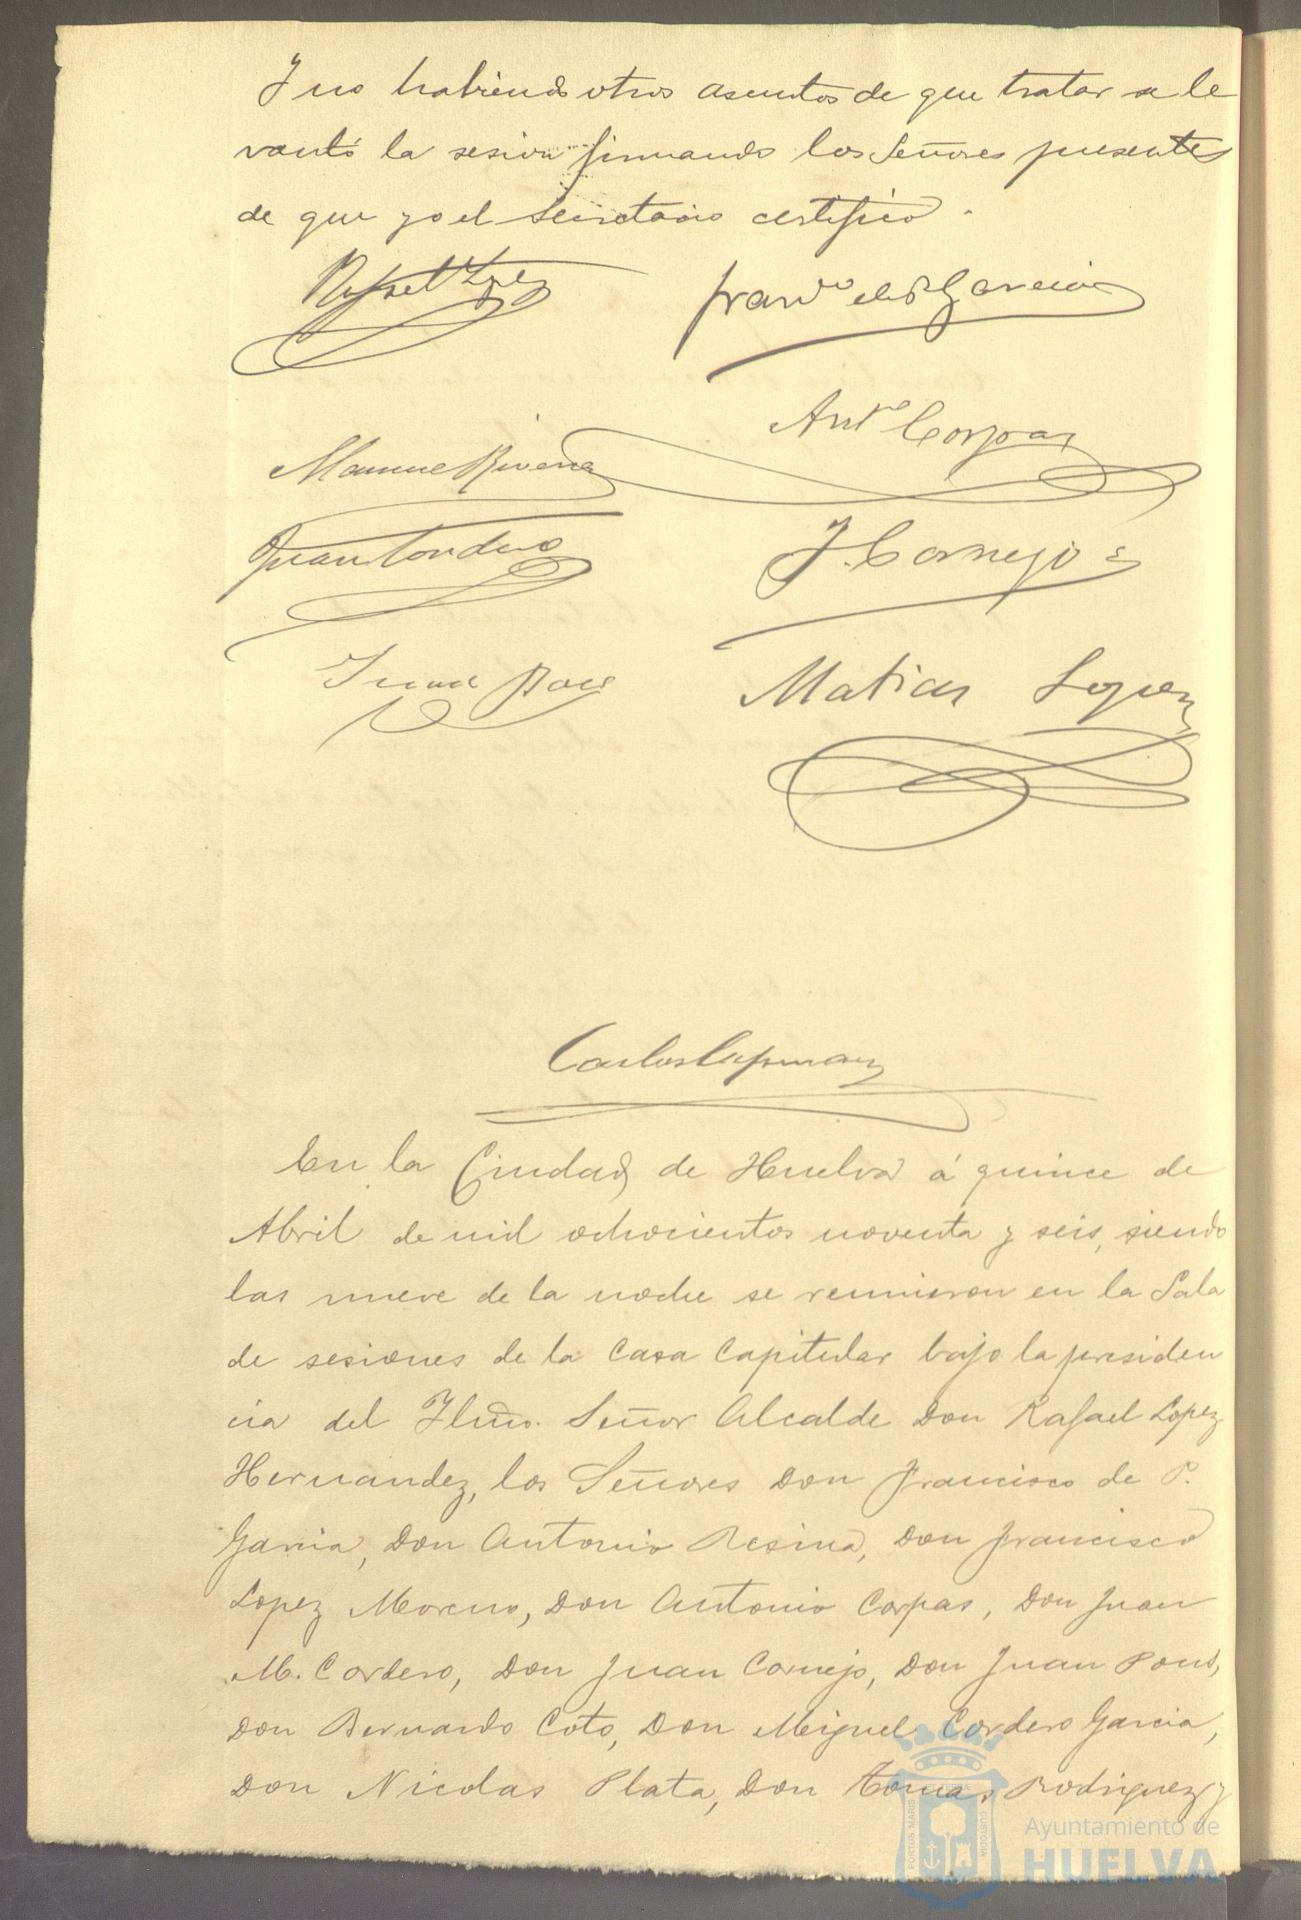 Y no habiendo otros asuntos de que tratar se le
vantó la sesion firmando los Señores presentes
de que yo el Secretario certifico.
Rafael Lpez
Franco de P Garcia
Ant.º Corpas
Manuel Rivera
Juan Cordero
J. Cornejo
Juan Pons
Matias Lopez
Carlos
En la Ciudad de Huelva á quince de
Abril de mil ochocientos noventa y seis, siendo
las nueve de la noche se reunieron en la Sala
de sesiones de la Casa Capitular bajo la presiden
cia del Yltmo. Señor Alcalde Don Rafael Lopez
Hernandez, los Señores Don Francisco de P.
Garcia, Don Antonio Resina, Don Francisco
Lopez Moreno, Don Antonio Corpas, Don Juan
M. Cordero, Don Juan Cornejo, Don Juan Pons,
Don Bernardo Coto, Don Miguel Cordero Garcia,
Don Nicolas Plata, Don Tomas Rodriguez y
PORTUS MARIS
CUSTODIA
Ayuntamiento de
HUELVA